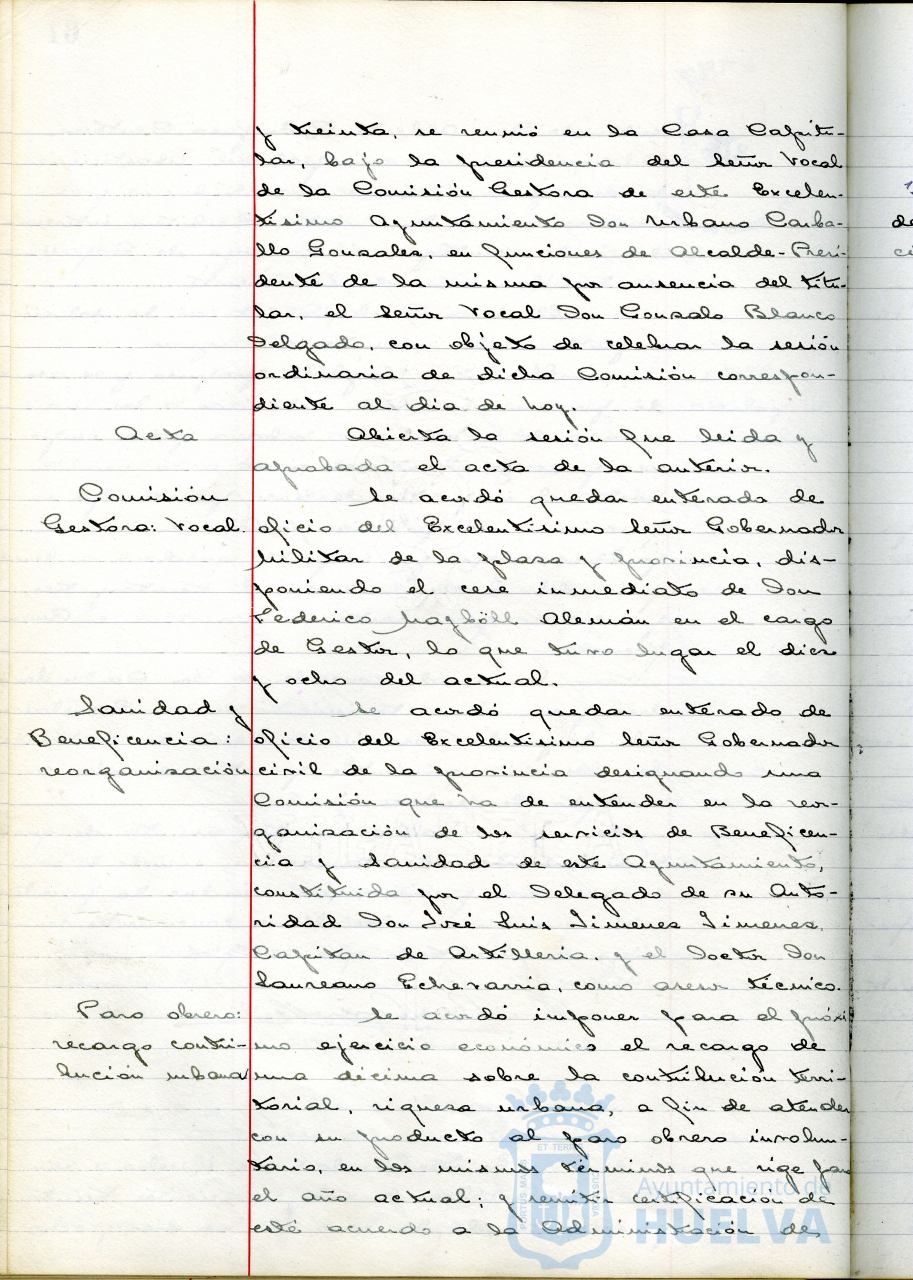 y treinta, se reunió en la Casa Capitu-
lar, bajo la presidencia del Señor Vocal
de la Comisión Gestora de este Excelen-
tísimo Ayuntamiento Don Urbano Carba-
llo Gonzales, en funciones de Alcalde-Presi-
dente de la misma por ausencia del titu-
lar, el Señor Vocal Don Gonzalo Blanco
Delgado, con objeto de celebrar la sesión
ordinaria de dicha Comisión correspon-
diente al dia de hoy.
Acta
Abierta la sesión fue leida y
aprobada el acta de la anterior.
Comisión
Gestora: Vocal.
Se acordó quedar enterado de
oficio del Excelentisimo Señor Gobernador
Militar de la plaza y provincia, dis-
poniendo el cese inmediato de Don
Federico Alemán en el cargo
de Gestor, lo que tuvo lugar el diez
y ocho del actual.
Sanidad y
Beneficencia:
reorganización
Se acordó quedar enterado de
oficio del Excelentisimo Señor Gobernador
civil de la provincia designando una
Comisión que ha de entender en la reor-
ganización de los servicios de Beneficen-
cia y Sanidad de este Ayuntamiento,
constituida por el Delegado de su Auto-
ridad Don José Luis Jimenez Jimenez,
Capitan de Artilleria, y el Doctor Don
Laureano Echevarria, como asesor técnico.
Paro obrero:
recargo contri-
bución urbana
Se acordó imponer para el próxi
mo ejercicio económico el recargo de
una décima sobre la contribución terri-
torial, riqueza urbana, a fin de atender
con su producto al paro obrero involun-
tario, en los mismos términos que rige para
el año actual; y remitir certificación de
este acuerdo a la Administración de
Ayuntamiento de
HUELVA